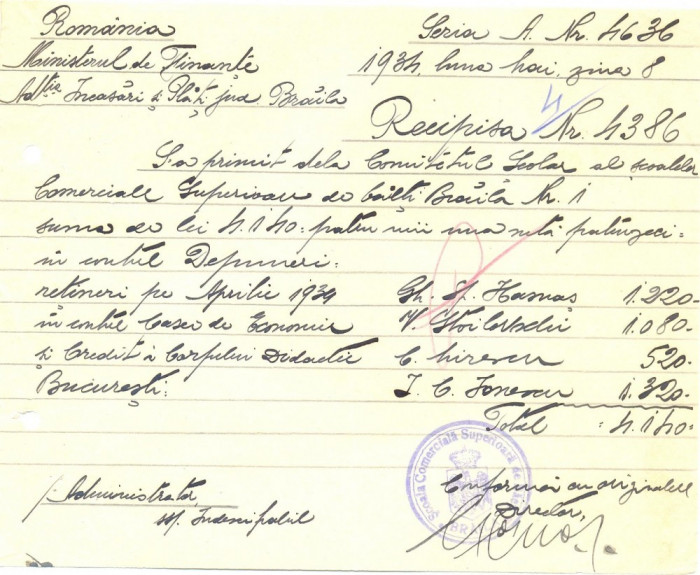 România
Ministerul de Finanțe
Adția Încasări și Plăți jud. Brăila
Seria A. Nr. 4636
1934 luna Mai, ziua 8
Recipisa Nr. 4386
S'a primit dela Comitetul Școlar al școalelor
Comerciale Superioare de băieți Brăila Nr. 1
suma de lei 4.140= patru mii una sută patruzeci=
în contul Depuneri:
rețineri pe Aprilie 1934
în contul Casei de Economie
și Credit a Corpului Didactic
București:
Gh. Șt. Hamaș 1.220.-
1.080.-
C. 520.-
I. C. Ionescu 1.320.-
Total =4.140=
Administrator,
Conformă cu originalul
Director,
Școala Comercială Superioară de